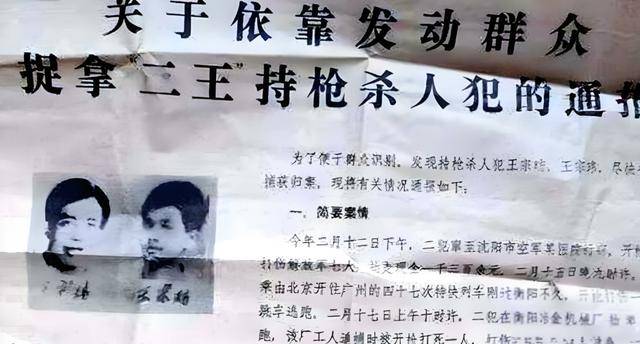 关于依靠发动群众
捉拿“二王”持枪杀人犯的通
为了便于群众识别、发现持枪杀人犯王宗 、王宗玮，尽快
捕获归案，现将有关情况通报如下：
一、简要案情
今年二月十二日下午，二犯窜至沈阳市空军某医院 ，开枪
七人， 现金一千三百余元。二月十五日晚九时许，
乘由北京开往广州的四十七次特快列车刚过衡阳不久，开枪打伤
逃跑。二月十七日上午十时许，二犯在衡阳冶金机械厂
跑，该厂工人追捕时被开枪打死一人，打伤
王宗